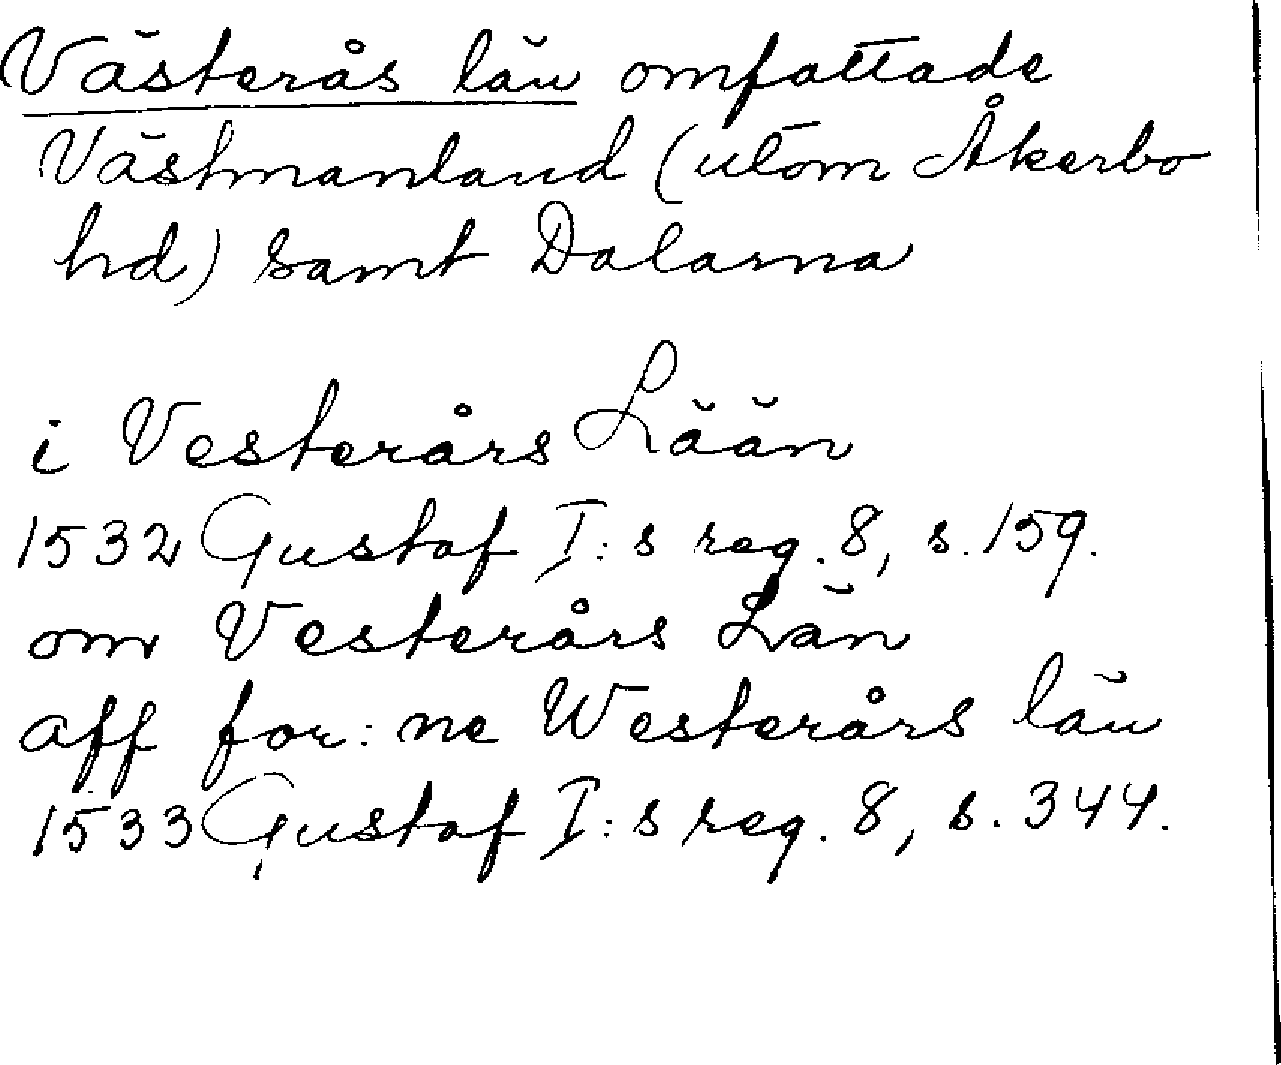 Västerås län omfattade
Västmanland (utom Åkerbo
hd) samt Dalarna
i Vesterårs Lään
1532 Gustaf I:s reg. 8, s. 159.
om Vesterårs Län
aff for:ne Westerårs län
1533 Gustaf I:s reg. 8, s. 344.